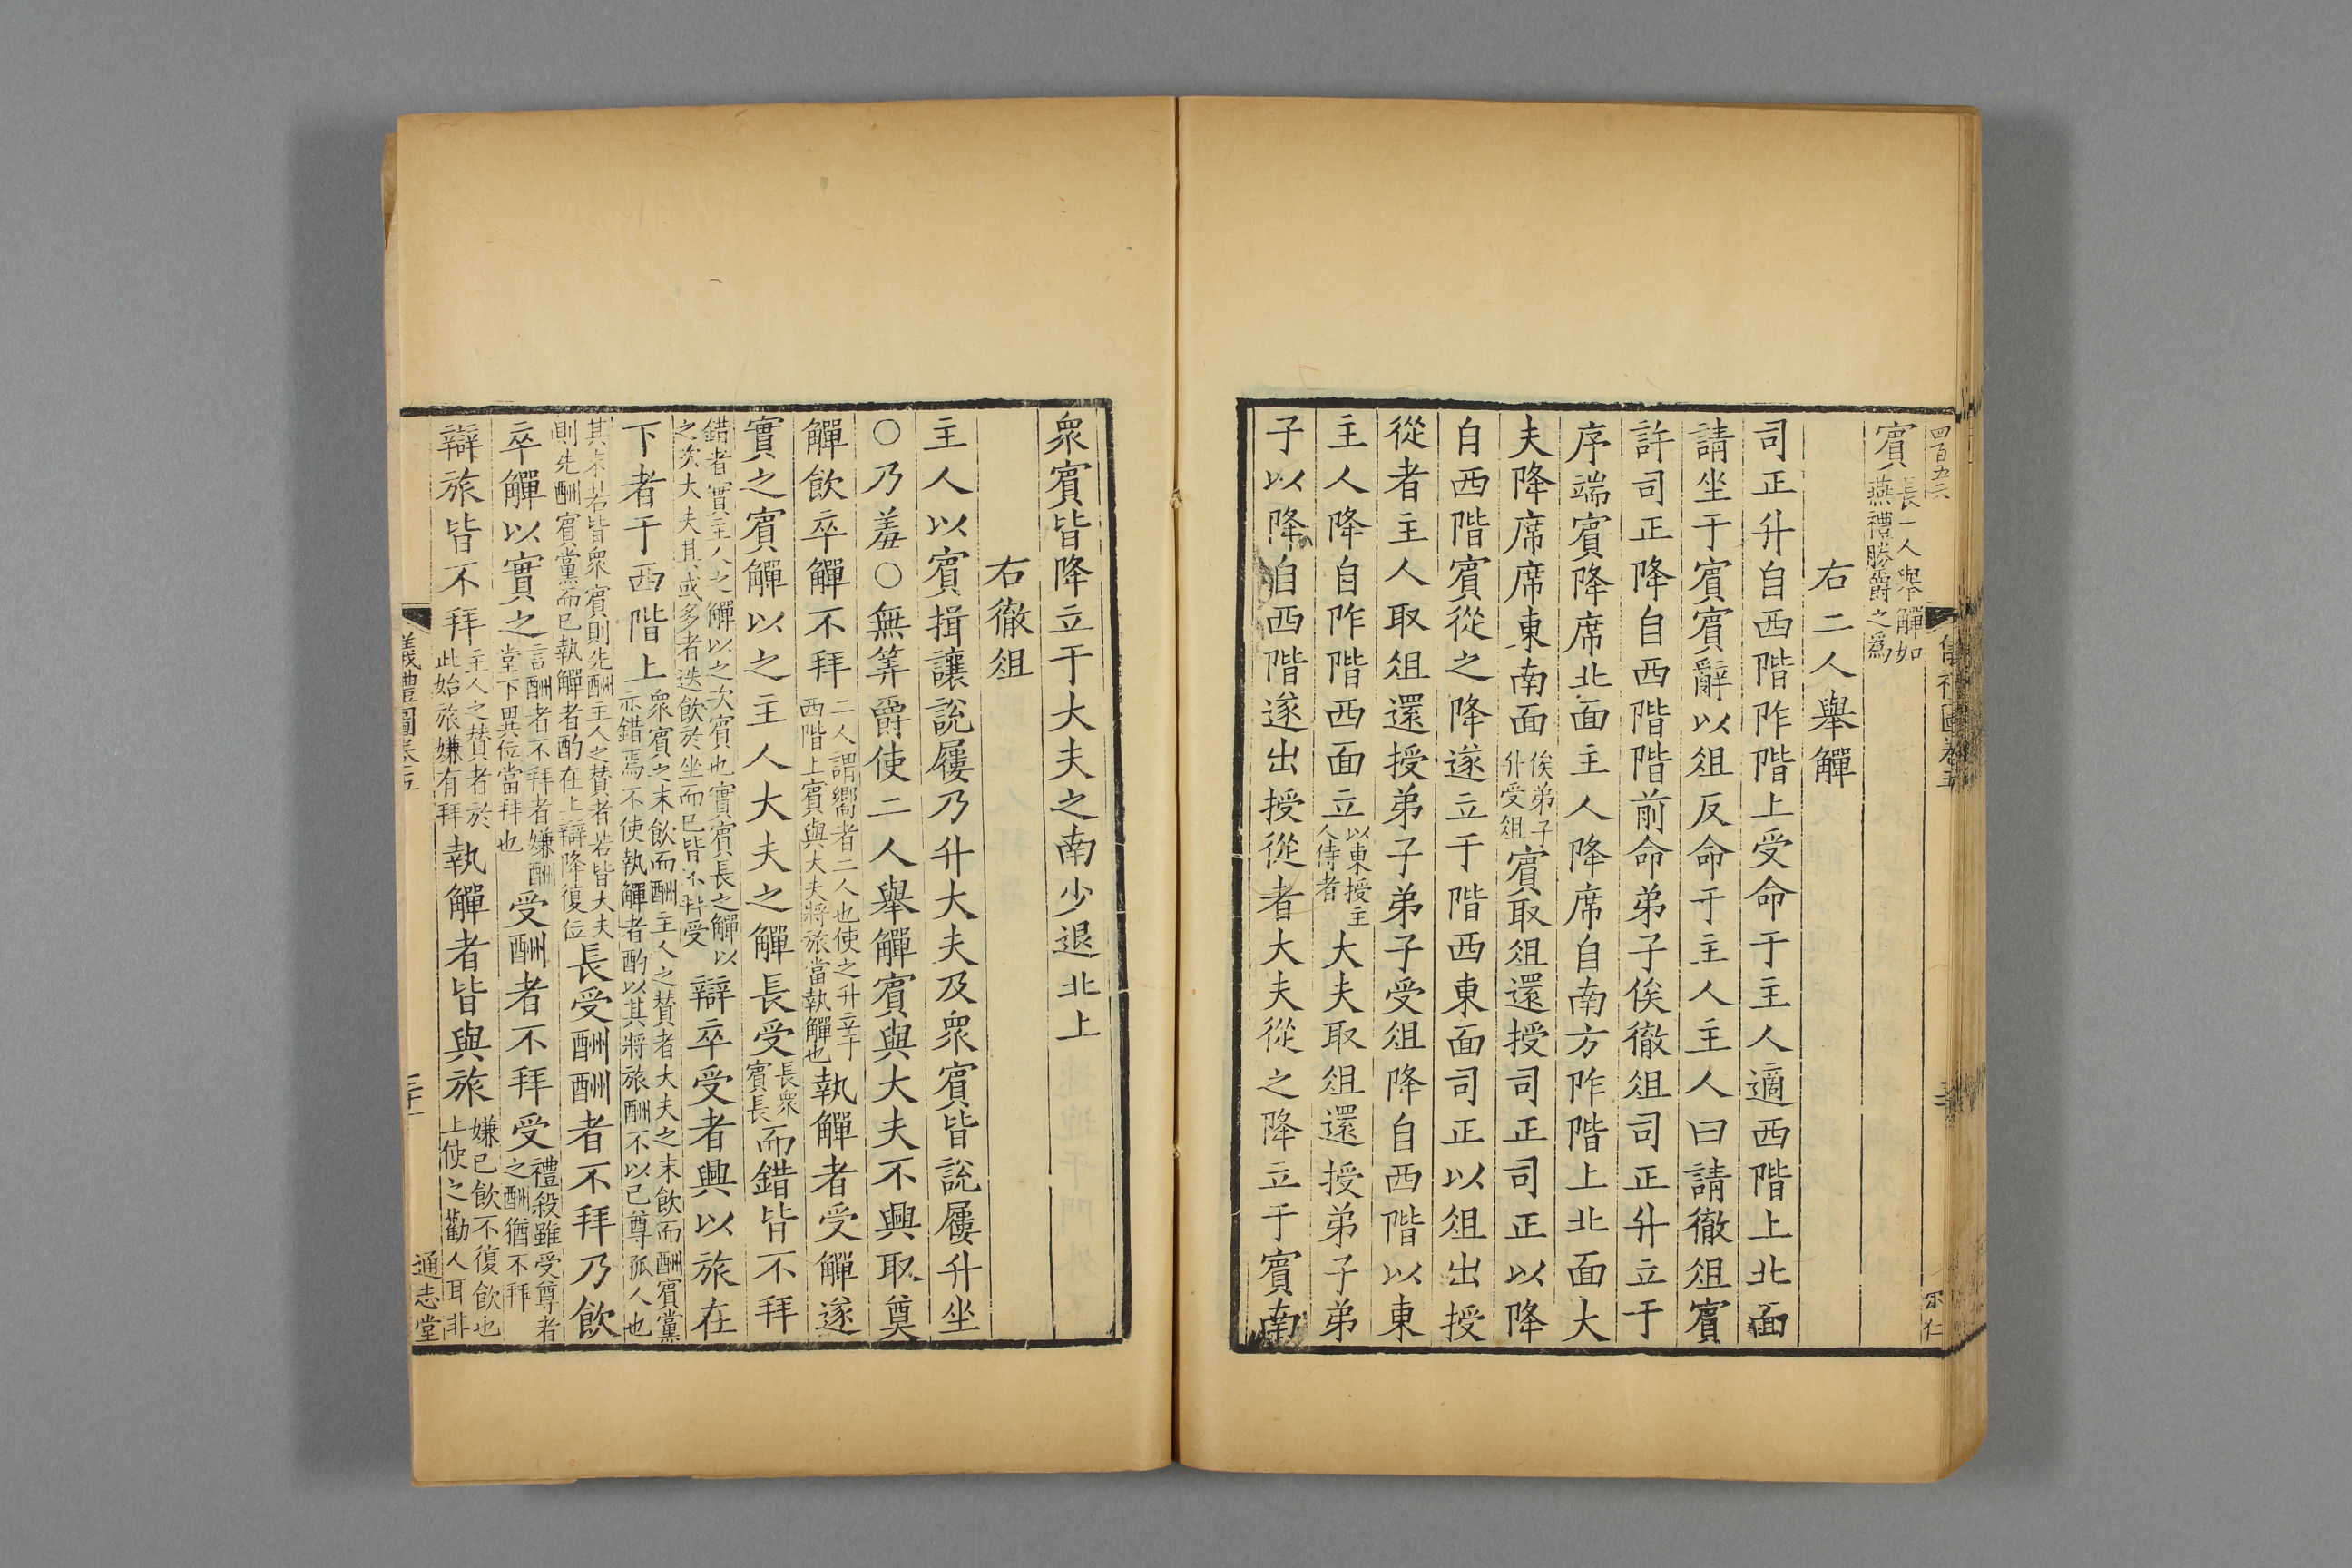 四百五六
賓長一人舉觶如燕禮媵爵之爲
右二人舉觶
司正升自西階阼階上受命于主人適西階上北面
請坐于賓賓辭以俎反命于主人主人曰請徹俎賓
許司正降自西階階前命弟子俟徹俎司正升立于
序端賓降席北面主人降席自南方阼階上北面大
夫降席席東南面俟弟子升受俎賓取俎還授司正司正以降
自西階賓從之降遂立于階西東面司正以俎出授
從者主人取俎還授弟子弟子受俎降自西階以東
主人降自阼階西面立以東授主人侍者大夫取俎還授弟子弟
子以降自西階遂出授從者大夫從之降立于賓南
衆賓皆降立于大夫之南少退北上
右徹俎
主人以賓揖讓說屨乃升大夫及衆賓皆說屨升坐
○乃羞○無筭爵使二人舉觶賓與大夫不興取奠
觶飲卒觶不拜二人謂嚮者二人也使之升立于西階上賓與大夫將旅當執觶也執觶者受觶遂
實之賓觶以之主人大夫之觶長受長衆賓長而錯皆不拜
錯者實主人之觶以之次賓也實賓長之觶以之次大夫其或多者迭飲於坐而已皆不拜受辯卒受者興以旅在
下者于西階上衆賓之末飲而酬主人之贊者大夫之末飲而酬賓黨亦錯焉不使執觶者酌以其將旅酬不以己尊孤人也
其末若皆衆賓則先酬主人之贊者若皆大夫則先酬賓黨而已執觶者酌在上辯降復位長受酬酬者不拜乃飲
卒觶以實之言酬者不拜者嫌酬堂下異位當拜也受酬者不拜受禮殺雖受尊者之酬猶不拜
辯旅皆不拜主人之贊者於此始旅嫌有拜執觶者皆與旅嫌已飲不復飲也上使之勸人耳非
儀禮圖卷五
通志堂